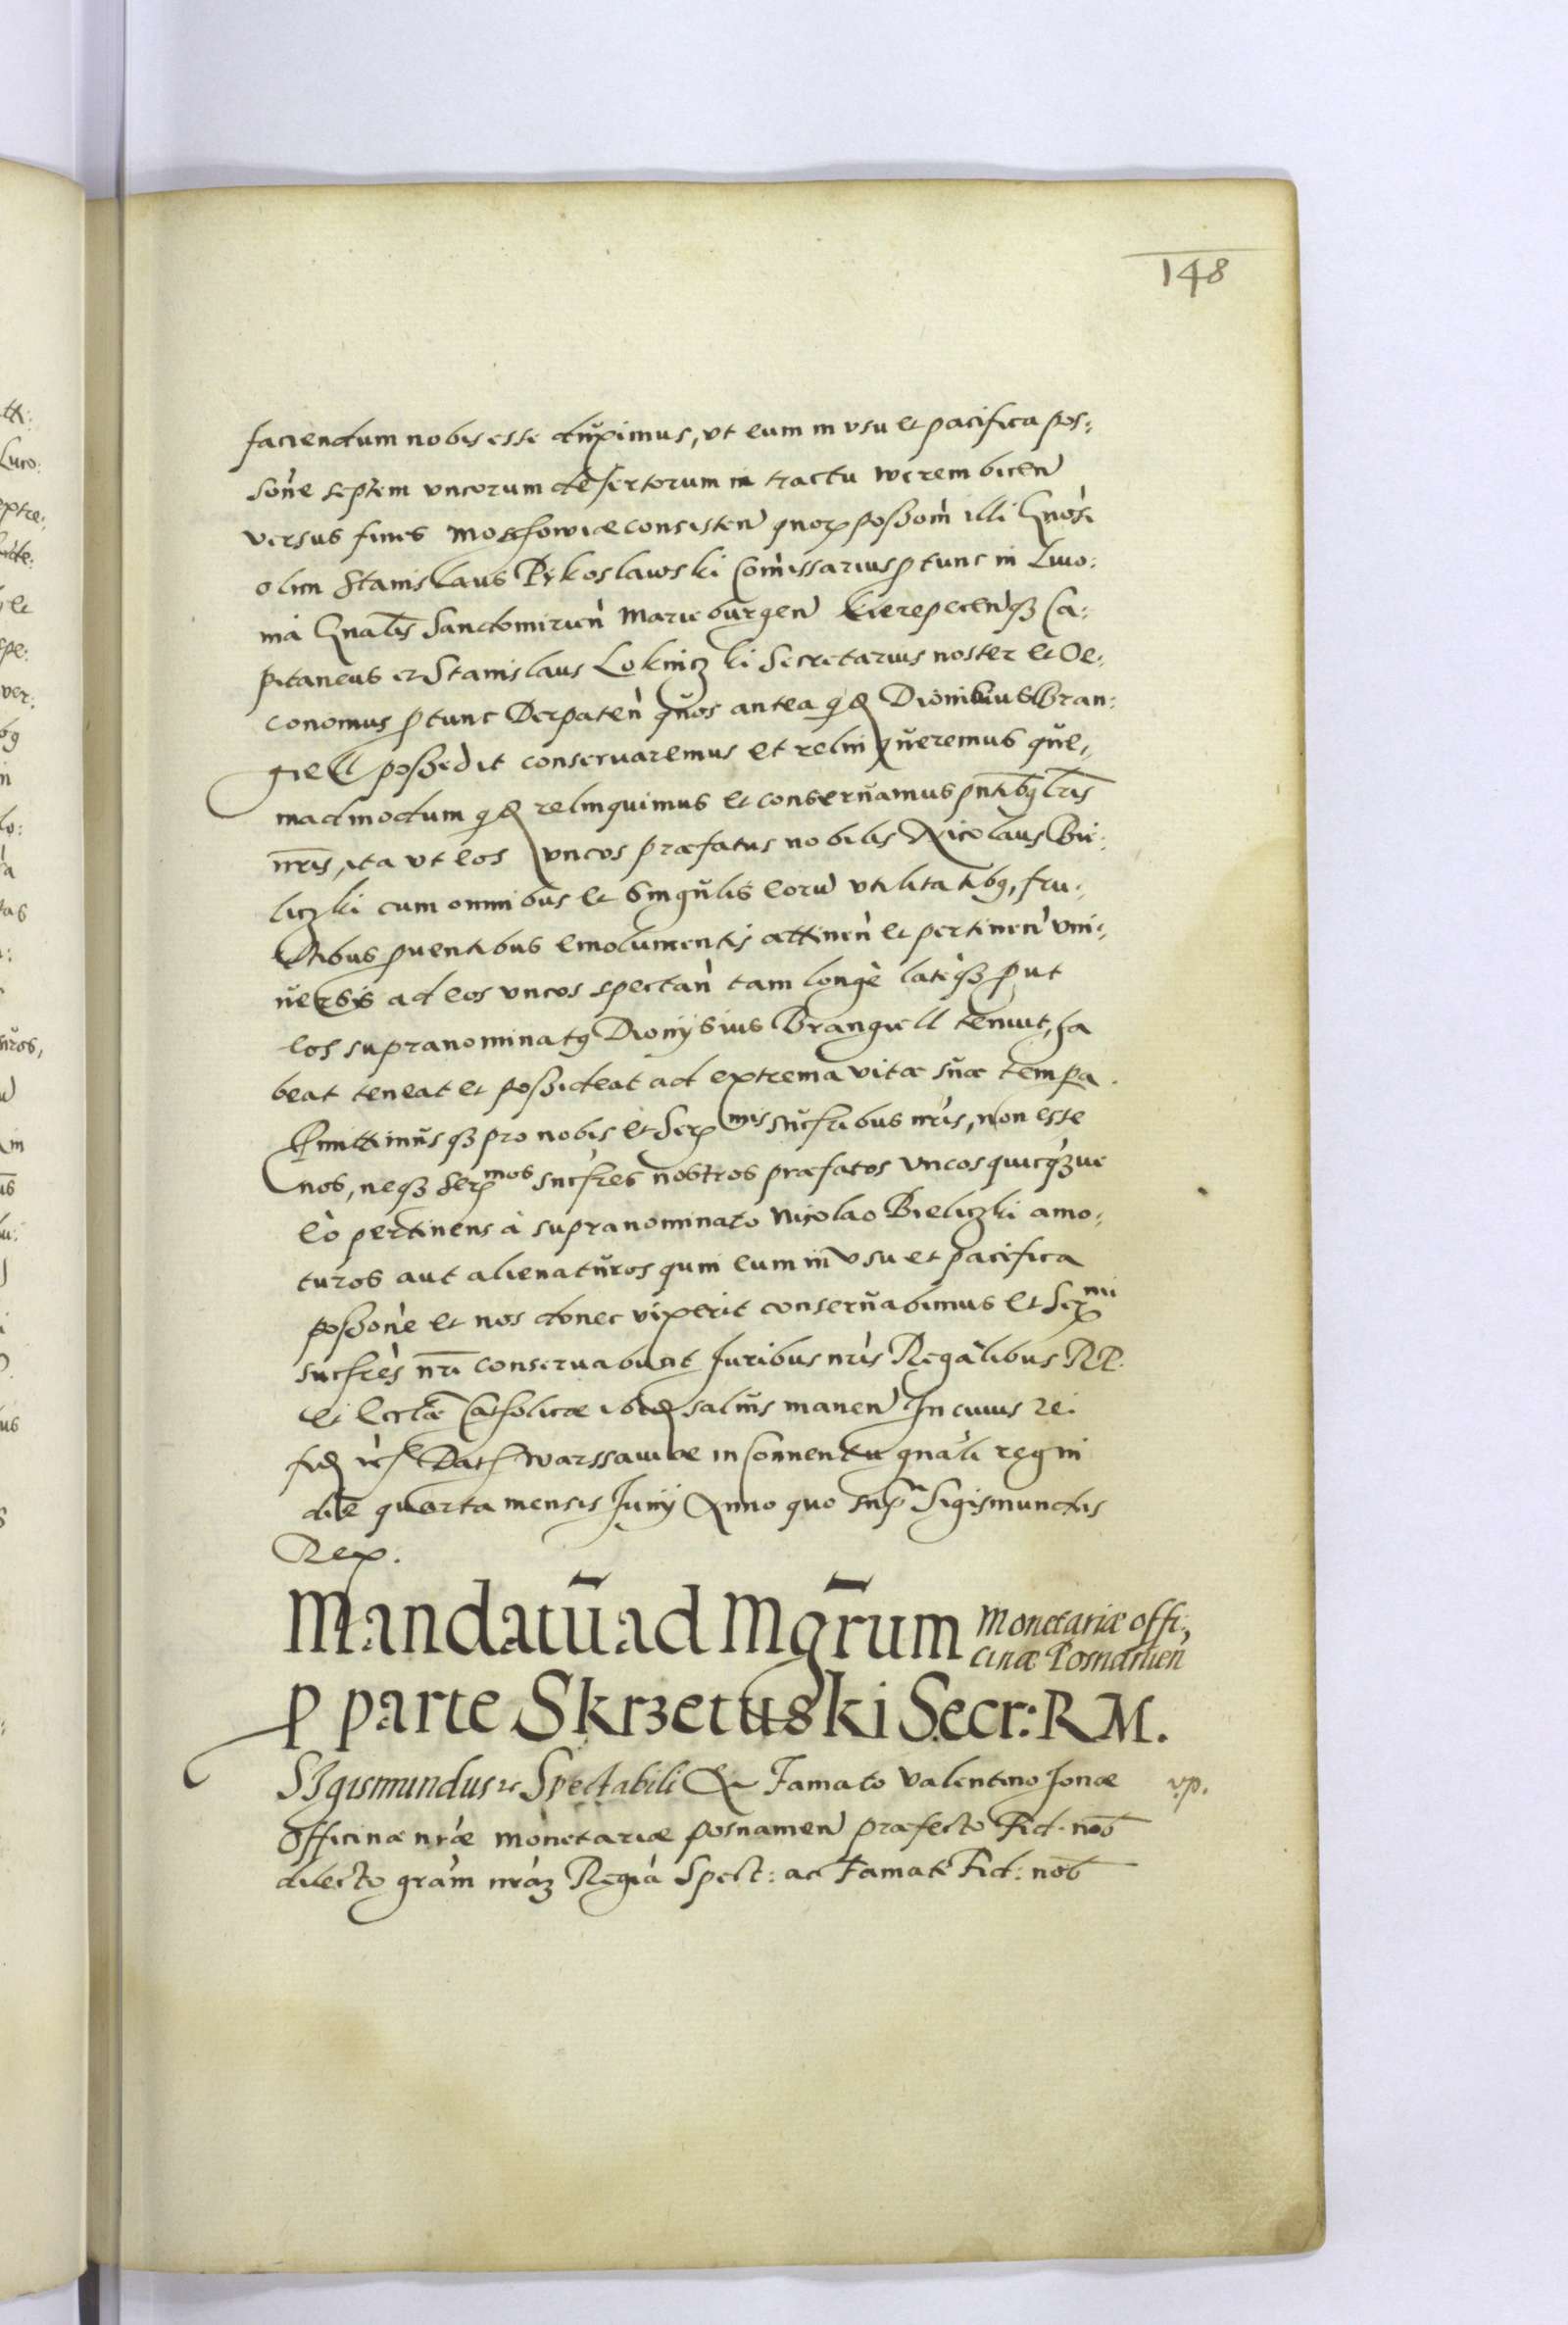 148
faciendum nobis esse duximus, vt eum in vsu et pacifica pos:
sone septem vncorum desertorum in tractu werembicen
versus fines Moschowiæ consisten quorum possom illi Gnosi
olim Stanislaus Pękoslawski Comissarius p tunc in Liuo:
nia Gnalis Sandomirien Marieburgen Kierepecenq3 Ca:
pitaneus et Stanislaus Lokniczki Secretarius noster et Oe:
conomus p tunc Derpaten quos antea qq Dionisius Bran:
giell possedit conseruaremus et relinqueremus que:
madmodum qq relinquimus et conseruamus pntibq lris
nris, ita vt eos vncos præfatus nobilis Nicolaus Bie:
liczki cum omnibus et singulis eoru vtilitatibq, fru:
ctibus puentibus emolumentis attinen et pertinen vni:
uersis ad eos vncos spectan tam longè latèq3 put
eos supranominatq Dionysius Brangiell tenuit, ha
beat teneat et possideat ad extrema vitæ suæ tempa.
Pmittimusq3 pro nobis et Ser mis sucfribus nris, non esse
nos, neq3 Ser mos sucfres nostros præfatos vncos quicq3 ue
eò pertinens à supranominato Nicolao Bieliczki amo:
turos aut alienaturos quin eum in vsu et pacifica
possone et nos donec vixerit conseruabimus et Ser mi
sucfres nri conseruabunt Juribus nris Regalibus RP.
et Ecclæ Catholicæ ibid saluis manen In cuius rei
fid etc Dat Warssauiæ in Conuentu gnali regni
die quarta mensis Junij Anno quo sup Sigismundus
Rex.
Mandatū ad Mgr̄um Monetariæ offi:
cinæ Posnanien
p parte Skrzetuski Secr: R M.
SIgismundus etc Spectabili & Famato Valentino Jonæ v.p.
Officinæ nræ monetariæ posnanien præfecto Fid. nob
dilecto gram nram Regia Spect: ac Famate Fid: nob